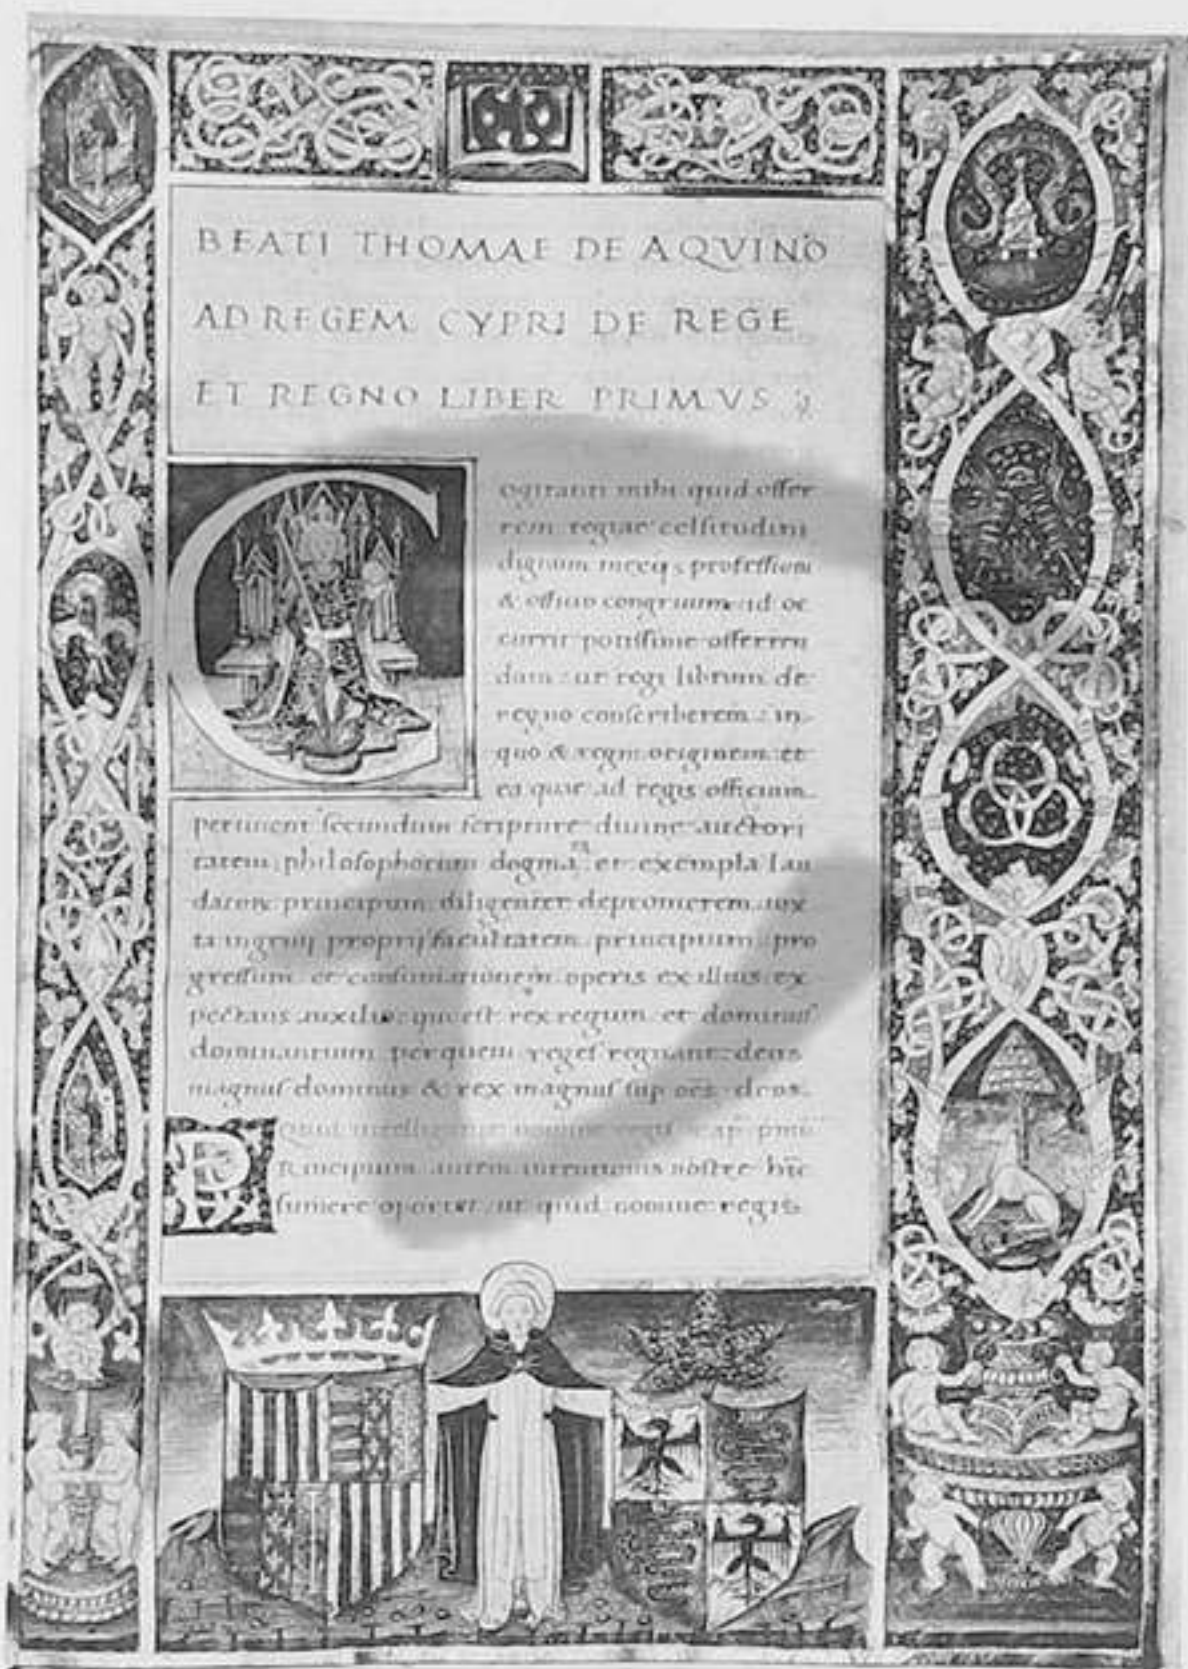 BEATI THOMAE DE AQVINO
AD REGEM CYPRI DE REGE
ET REGNO LIBER PRIMVS
ogitanti mihi quid offer
rem regiae celsitudini
dignum meeqз professioni
& officio congruum: id oc
currit potissime offeren
dum: ut regi librum de
regno conscriberem: in
quo & regni originem et
ea quae ad regis officium
pertinent secundum scripture divine auctori
tatem philosophorum dogmata et exempla lau
datorum principum diligenter depromerem iux
ta ingenij proprij facultatem principium pro
gressum et consumationem operis ex illius ex
pectans auxilio qui est rex regum et dominus
dominantium per quem reges regnant: deus
magnus dominus & rex magnus sup oēs deos.
Quid intelligatur nomine regis cap pmū
PRincipium autem intentionis nostre hīc
sumere oportet ut quid nomine regis